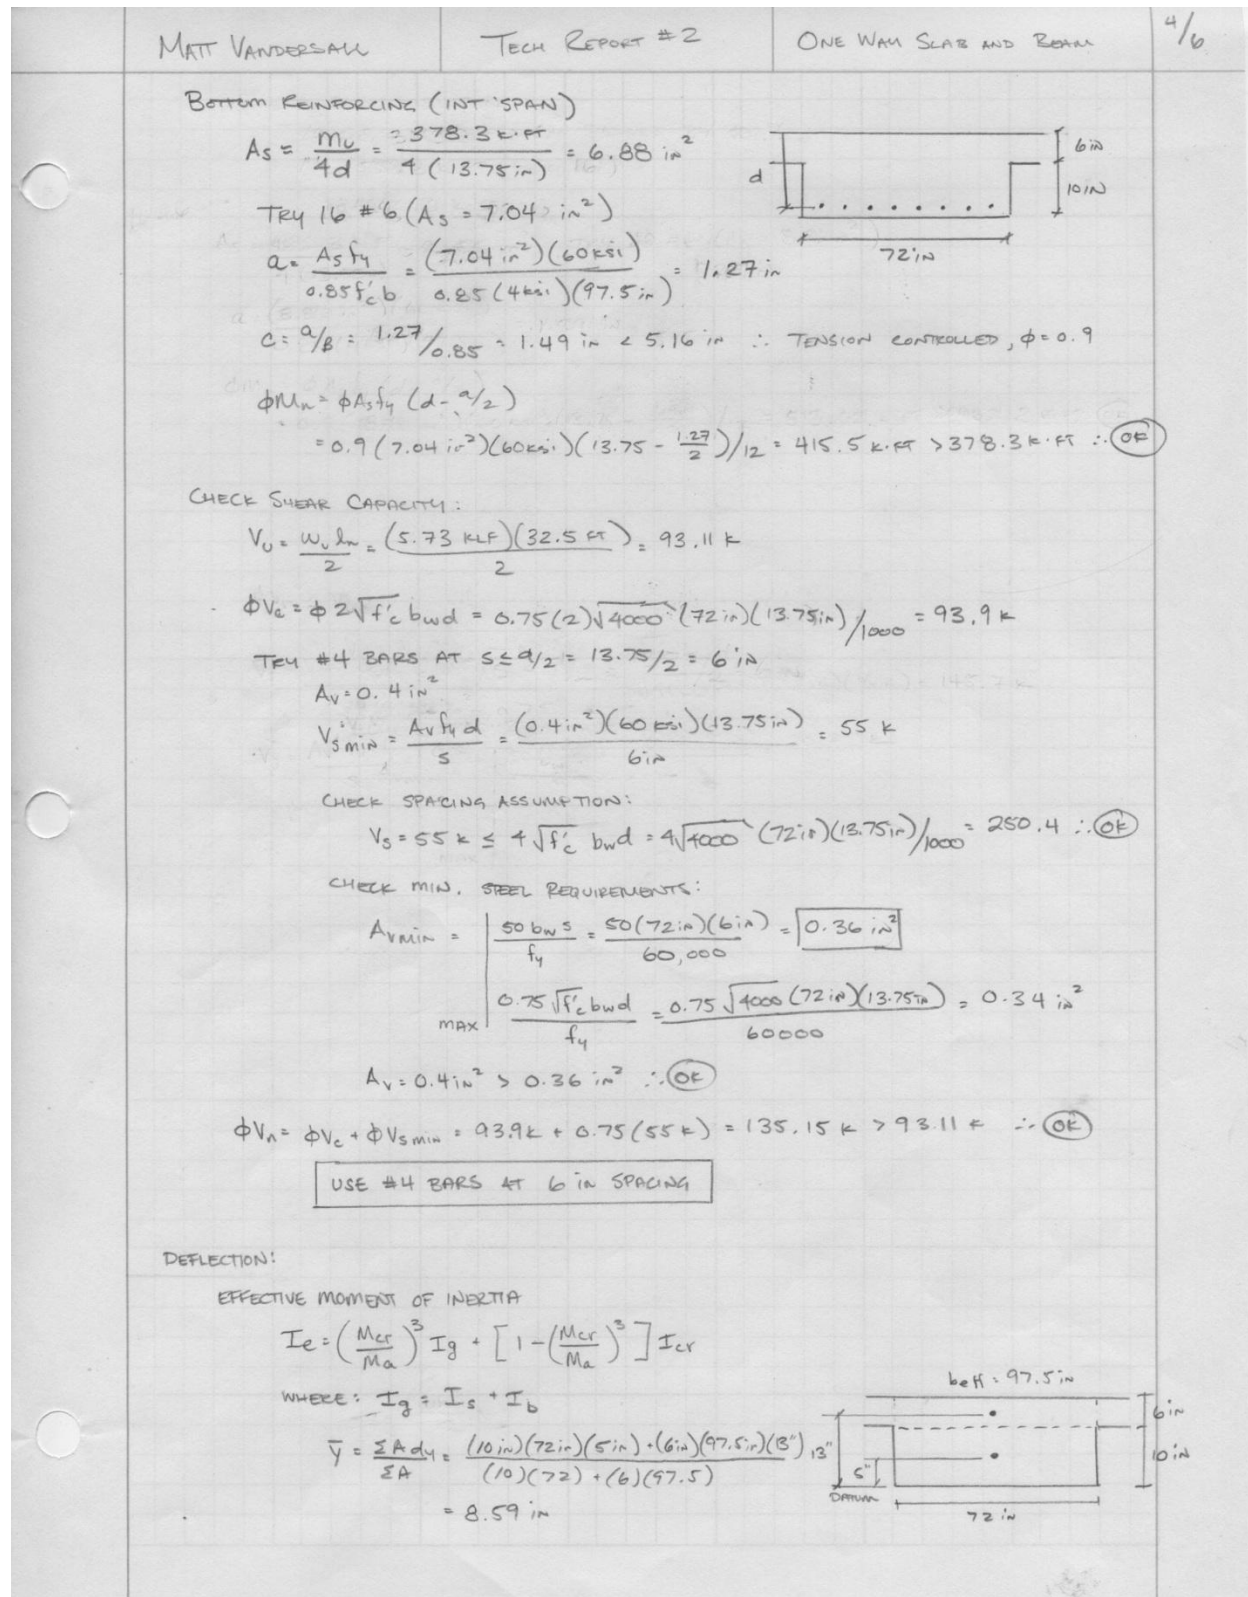 MATT VANDERSALL
TECH REPORT #2
ONE WAY SLAB AND BEAM
4/6
BOTTOM REINFORCING (INT SPAN)
As = Mu/4d = 378.3 K·FT / 4(13.75in) = 6.88 in²
TRY 16 #6 (As = 7.04 in²)
a = As fy / 0.85f'c b = (7.04 in²)(60ksi) / 0.85(4ksi)(97.5in) = 1.27 in
c = a/β = 1.27/0.85 = 1.49 in < 5.16 in ∴ TENSION CONTROLLED, φ=0.9
φMn = φAsfy (d - a/2)
= 0.9(7.04 in²)(60ksi)(13.75 - 1.27/2)/12 = 415.5 K·FT > 378.3 K·FT ∴ OK
d
6in
10IN
72in
CHECK SHEAR CAPACITY:
Vu = wu ln / 2 = (5.73 KLF)(32.5 FT) / 2 = 93.11 K
φVc = φ2√f'c bwd = 0.75(2)√4000 (72in)(13.75in)/1000 = 93.9 K
TRY #4 BARS AT S ≤ d/2 = 13.75/2 = 6 in
Av = 0.4 in²
Vsmin = Av fy d / s = (0.4in²)(60 ksi)(13.75in) / 6in = 55 K
CHECK SPACING ASSUMPTION:
Vs = 55 K ≤ 4√f'c bwd = 4√4000 (72in)(13.75in)/1000 = 250.4 ∴ OK
CHECK MIN. STEEL REQUIREMENTS:
Avmin = 50 bw s / fy = 50(72in)(6in) / 60,000 = 0.36 in²
MAX 0.75√f'c bwd / fy = 0.75√4000 (72in)(13.75in) / 60000 = 0.34 in²
Av = 0.4in² > 0.36 in² ∴ OK
φVn = φVc + φVsmin = 93.9K + 0.75(55K) = 135.15 K > 93.11 K ∴ OK
USE #4 BARS AT 6 IN SPACING
DEFLECTION:
EFFECTIVE MOMENT OF INERTIA
Ie = (Mcr/Ma)³ Ig + [1 - (Mcr/Ma)³] Icr
WHERE: Ig = Is + Ib
ȳ = ΣAdy / ΣA = (10in)(72in)(5in) + (6in)(97.5in)(13") / (10)(72) + (6)(97.5)
= 8.59 in
beff = 97.5in
6in
10in
13"
5"
DATUM
72in